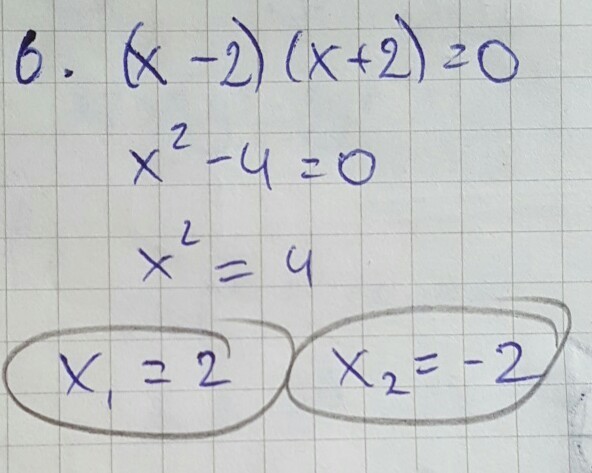 6. (x-2)(x+2)=0
x²-4=0
x²=4
x₁=2 x₂=-2